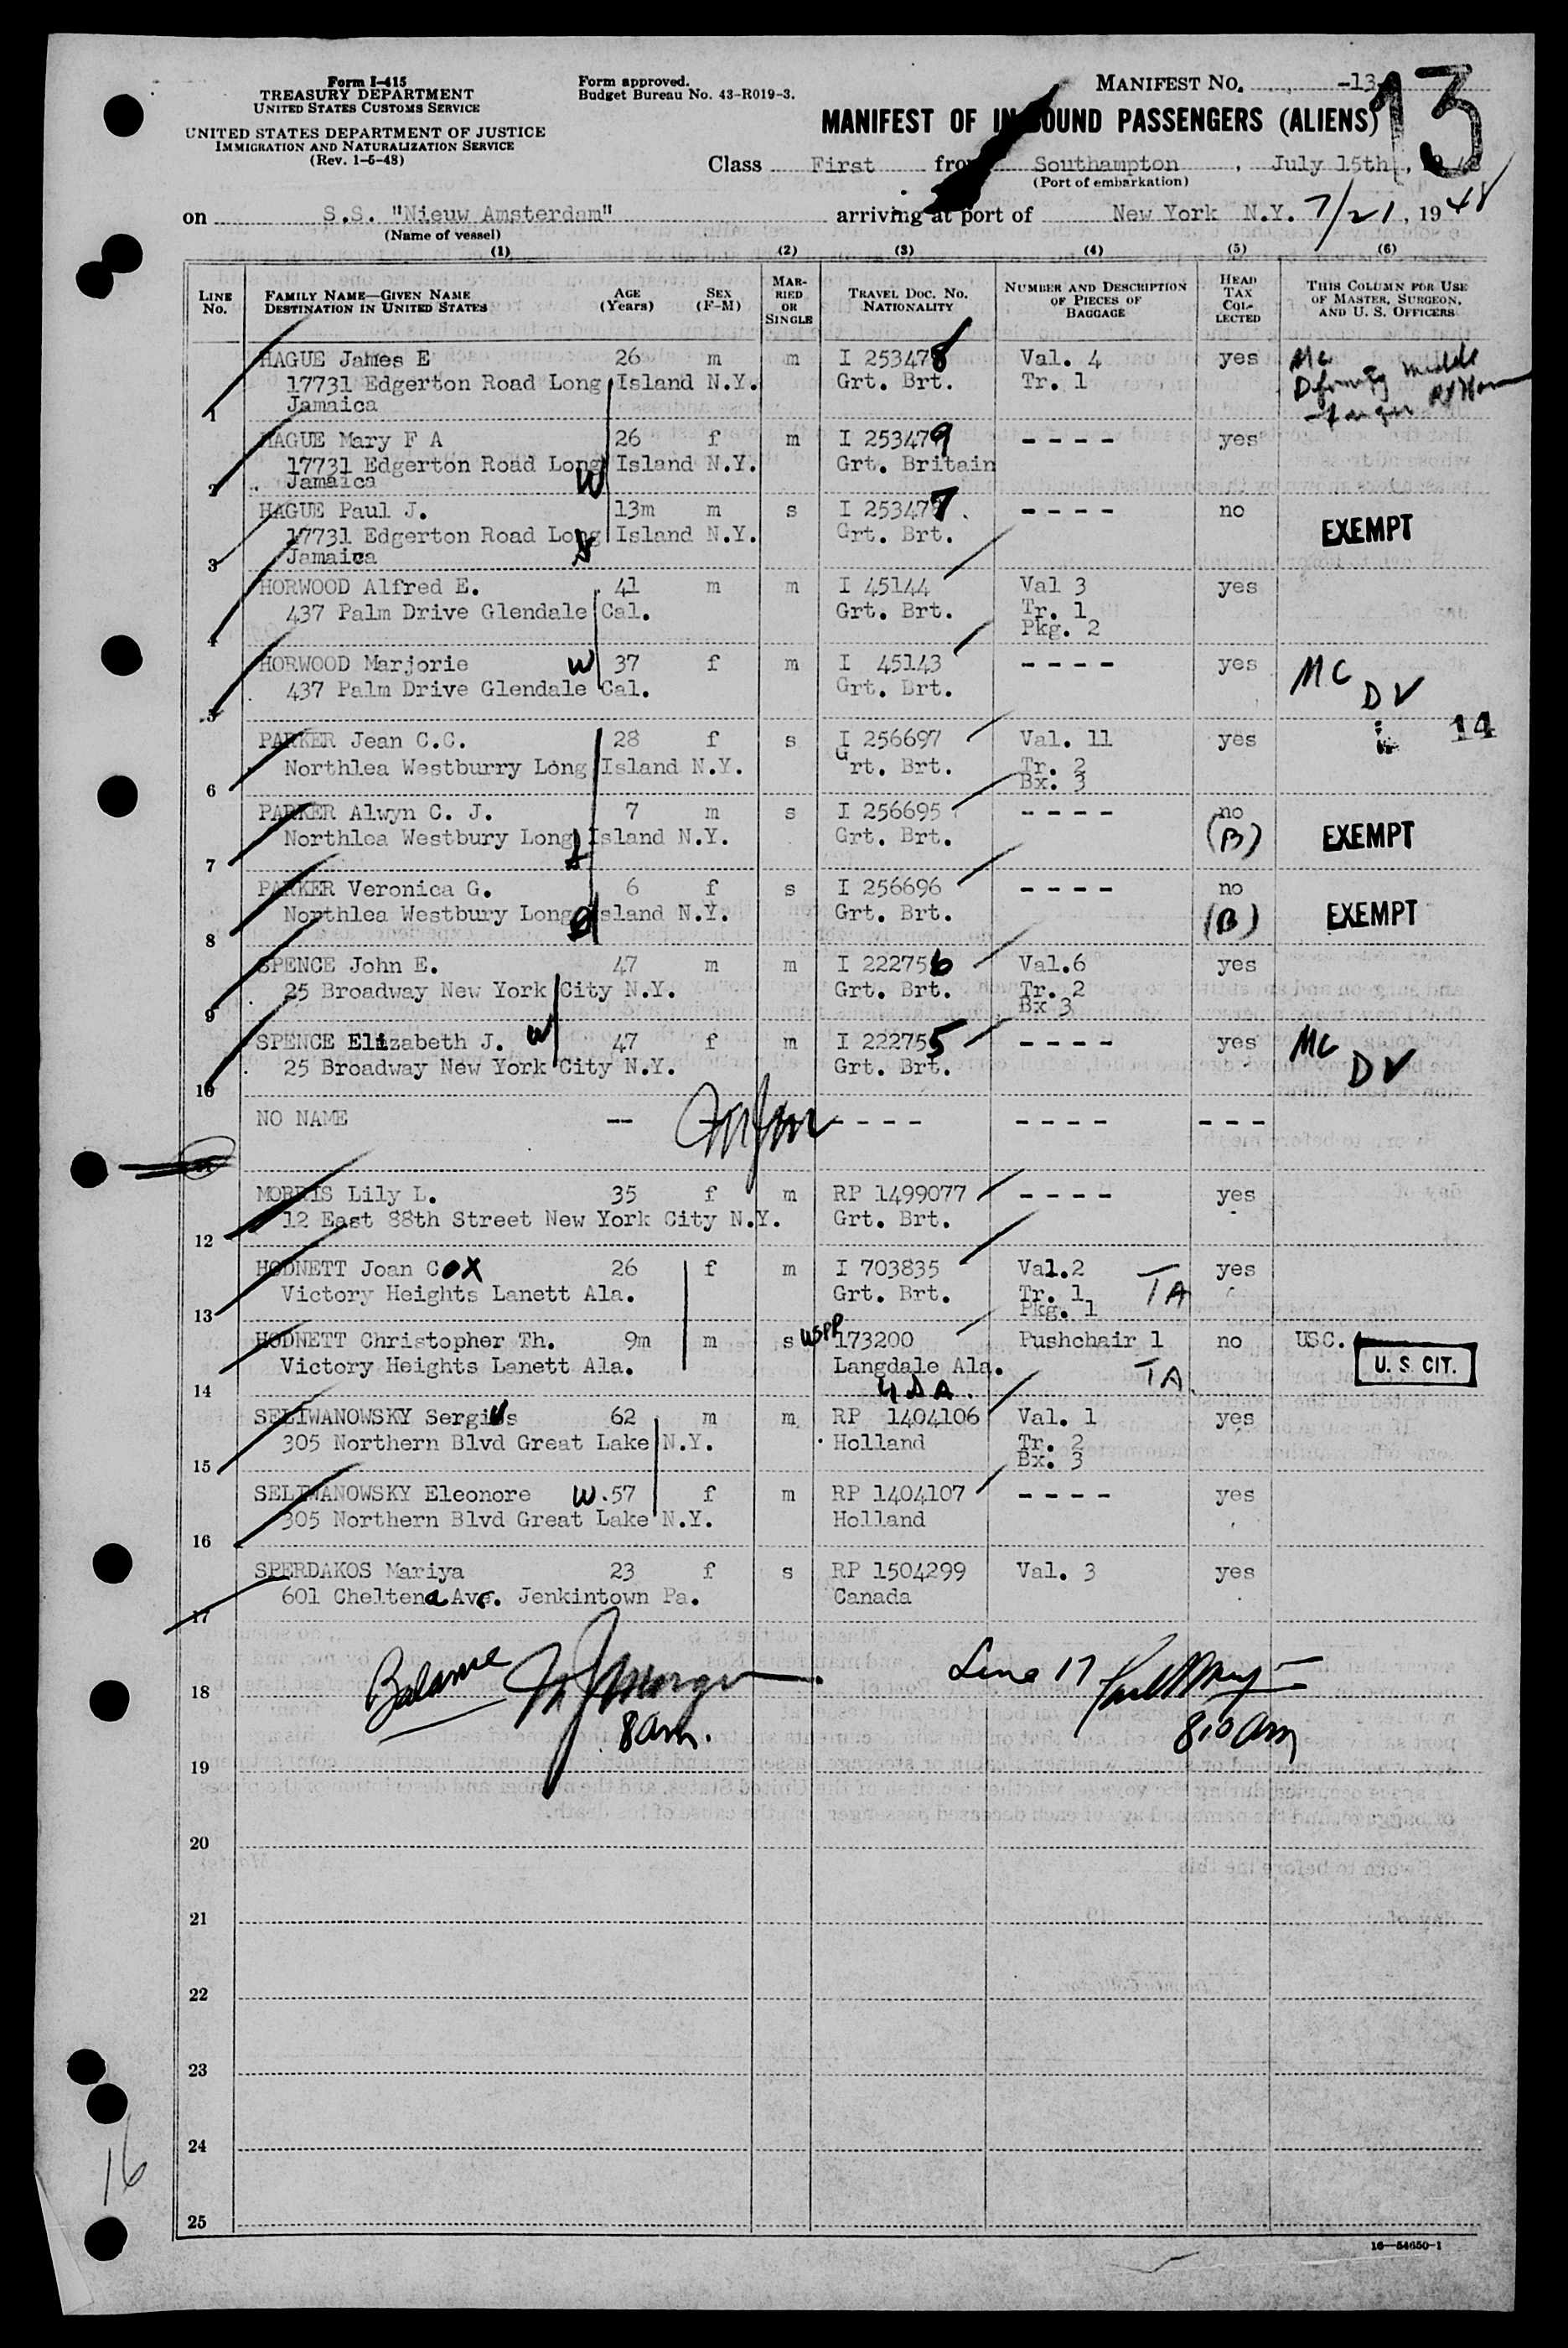 Form I-415
TREASURY DEPARTMENT
UNITED STATES CUSTOMS SERVICE
UNITED STATES DEPARTMENT OF JUSTICE
IMMIGRATION AND NATURALIZATION SERVICE
(Rev. 1-5-48)
Form approved.
Budget Bureau No. 43-R019-3.
MANIFEST NO. -13-
13
MANIFEST OF INBOUND PASSENGERS (ALIENS)
Class First from Southampton, July 15th, 1948
(Port of embarkation)
on S.S. "Nieuw Amsterdam" arriving at port of New York N.Y. 7/21, 1948
(Name of vessel)
(1) (2) (3) (4) (5) (6)
LINE No. FAMILY NAME—GIVEN NAME DESTINATION IN UNITED STATES AGE (Years) SEX (F-M) MARRIED OR SINGLE TRAVEL DOC. NO. NATIONALITY NUMBER AND DESCRIPTION OF PIECES OF BAGGAGE HEAD TAX COLLECTED THIS COLUMN FOR USE OF MASTER, SURGEON, AND U. S. OFFICERS
HAGUE James E 26 m m I 253478 Val. 4 yes MC
17731 Edgerton Road Long Island N.Y. Grt. Brt. Tr. 1 Deformity middle
1 Jamaica
HAGUE Mary F A 26 f m I 253479 ---- yes
17731 Edgerton Road Long Island N.Y. Grt. Britain
2 Jamaica W
HAGUE Paul J. 13m m s I 253477 ---- no
17731 Edgerton Road Long Island N.Y. Grt. Brt. EXEMPT
3 Jamaica s
HORWOOD Alfred E. 41 m m I 45144 Val 3 yes
437 Palm Drive Glendale Cal. Grt. Brt. Tr. 1
4 Pkg. 2
HORWOOD Marjorie W 37 f m I 45143 ---- yes MC
437 Palm Drive Glendale Cal. Grt. Brt. DV
5
PARKER Jean C.C. 28 f s I 256697 Val. 11 yes 14
Northlea Westburry Long Island N.Y. Grt. Brt. Tr. 2
6 Bx. 3
PARKER Alwyn C. J. 7 m s I 256695 ---- no
Northlea Westbury Long Island N.Y. Grt. Brt. (B) EXEMPT
7
PARKER Veronica G. 6 f s I 256696 ---- no
Northlea Westbury Long Island N.Y. Grt. Brt. (B) EXEMPT
8 d
SPENCE John E. 47 m m I 222756 Val.6 yes
25 Broadway New York City N.Y. Grt. Brt. Tr. 2
9 Bx 3
SPENCE Elizabeth J. W 47 f m I 222755 ---- yes MC
25 Broadway New York City N.Y. Grt. Brt. DV
10
NO NAME -- ---- ---- ---
MORRIS Lily L. 35 f m RP 1499077 ---- yes
12 East 88th Street New York City N.Y. Grt. Brt.
12
HODNETT Joan Cox 26 f m I 703835 Val.2 yes
Victory Heights Lanett Ala. Grt. Brt. Tr. 1 TA
13 Pkg. 1
HODNETT Christopher Th. 9m m s USPP 173200 Pushchair 1 no USC.
Victory Heights Lanett Ala. Langdale Ala. TA U. S. CIT.
14
SELIWANOWSKY Sergius 62 m m RP 1404106 Val. 1 yes
305 Northern Blvd Great Lake N.Y. Holland Tr. 2
15 Bx. 3
SELIWANOWSKY Eleonore W. 57 f m RP 1404107 ---- yes
305 Northern Blvd Great Lake N.Y. Holland
16
SPERDAKOS Mariya 23 f s RP 1504299 Val. 3 yes
601 Cheltena Ave. Jenkintown Pa. Canada
17
18 Balance Line 17
8 am. 8:10 am
19
20
21
22
23
24
25
16
16—54650-1